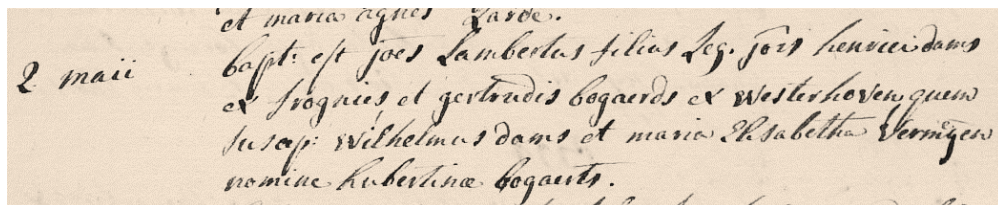 et maria agnes Larde.
2 maii bapt: est joes Lambertus filius Leg. jois henrici dams
ex frognies et gertrudis bogaerds ex westerhoven quem
susep: wilhelmus dams et maria Elisabetha Vermeyen
nomine hubertinæ bogaerts.